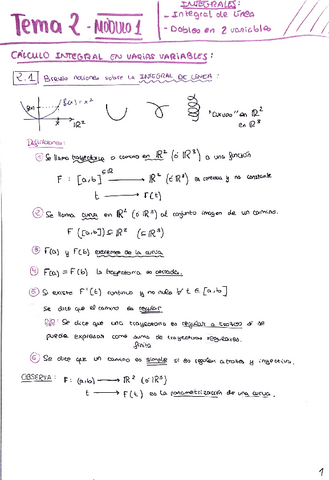 Tema 2 - MÓDULO 1
INTEGRALES:
- Integral de línea
- Dobles en 2 variables
CÁLCULO INTEGRAL EN VARIAS VARIABLES:
2.1 Breves nociones sobre la INTEGRAL DE LÍNEA:
f(x)=x²
ℝ²
"Curvas" en ℝ²
en ℝ³
Definiciones:
① Se llama trayectoria o camino en ℝ² (ó ℝ³) a una función
F: [a,b] ⊆ ℝ → ℝ² (ó ℝ³) es continua y no constante
t → F(t)
② Se llama curva en ℝ² (ó ℝ³) al conjunto imagen de un camino.
F([a,b]) ⊆ ℝ² (⊆ ℝ³)
③ F(a) y F(b) extremos de la curva
④ F(a) = F(b) la trayectoria es cerrada.
⑤ Si existe F'(t) continua y no nula ∀ t ∈ [a,b]
Se dice que el camino es regular
Se dice que una trayectoria es regular a trozos si se
puede expresar como suma de trayectorias regulares.
finita
⑥ Se dice que un camino es simple si es regular a trozos y inyectiva.
OBSERVA: F: (a,b) → ℝ² (ó ℝ³)
t → F(t) es la parametrización de una curva.
1